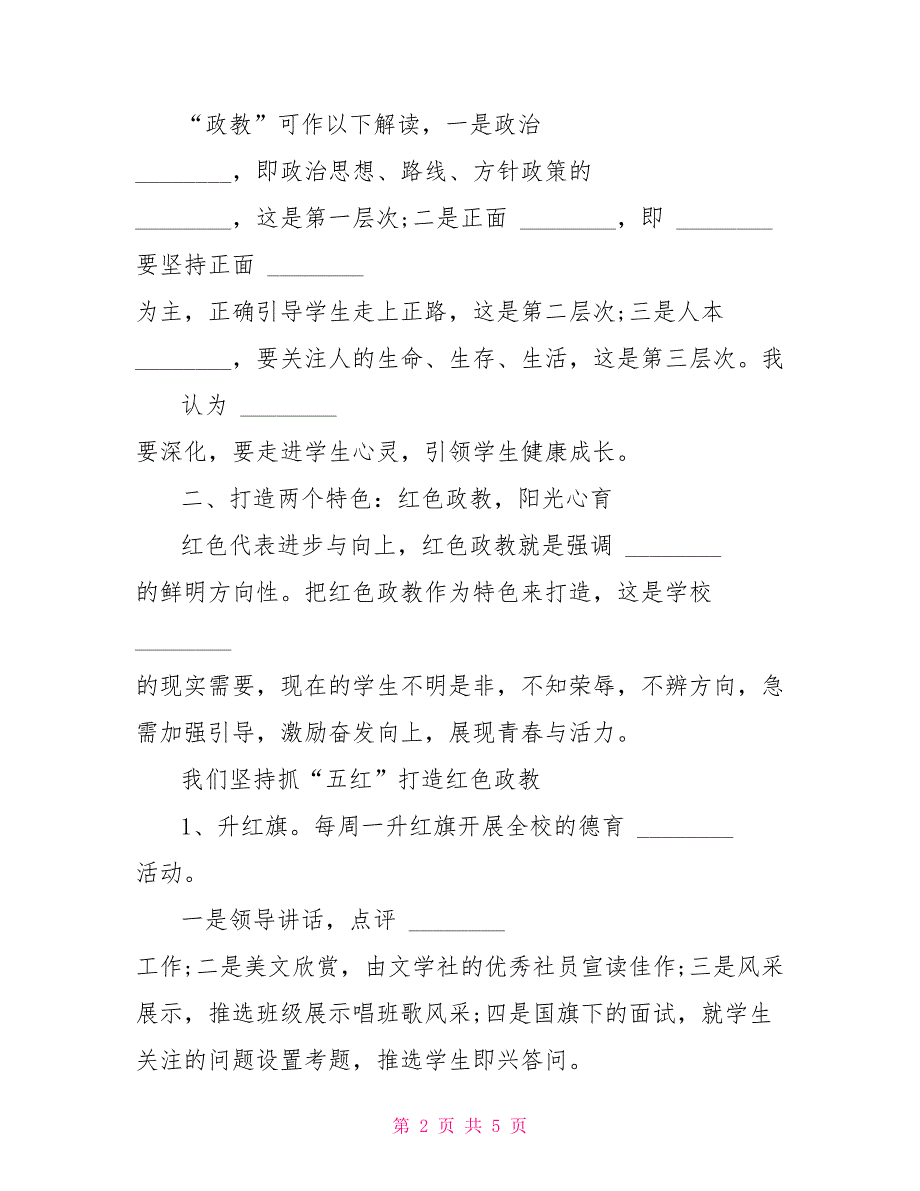 “政教”可作以下解读，一是政治
________，即政治思想、路线、方针政策的
________，这是第一层次;二是正面 ________，即 ________
要坚持正面 ________
为主，正确引导学生走上正路，这是第二层次;三是人本
________，要关注人的生命、生存、生活，这是第三层次。我
认为 ________
要深化，要走进学生心灵，引领学生健康成长。
二、打造两个特色：红色政教，阳光心育
红色代表进步与向上，红色政教就是强调 ________
的鲜明方向性。把红色政教作为特色来打造，这是学校
________
的现实需要，现在的学生不明是非，不知荣辱，不辨方向，急
需加强引导，激励奋发向上，展现青春与活力。
我们坚持抓“五红”打造红色政教
1、升红旗。每周一升红旗开展全校的德育 ________
活动。
一是领导讲话，点评 ________
工作;二是美文欣赏，由文学社的优秀社员宣读佳作;三是风采
展示，推选班级展示唱班歌风采;四是国旗下的面试，就学生
关注的问题设置考题，推选学生即兴答问。
第 2 页 共 5 页